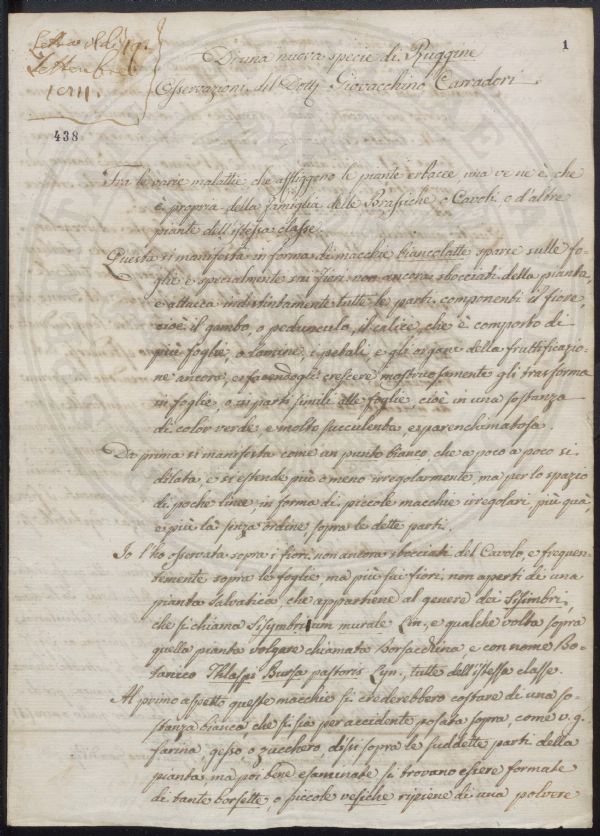 Letta il dì 19.
Settembre
1811.
438
1
Di una nuova specie di Ruggine
Osservazioni del Dott. Giovacchino Carradori.
Fra le varie malattie che affliggono le piante erbacee una ve ne è, che
è propria della famiglia delle Brassiche o Cavoli, o d'altre
piante dell'istessa classe.
Questa si manifesta in forma di macchie biancolatte sparse sulle fo-
glie e specialmente sui fiori non ancora sbocciati della pianta,
e attacca indistintamente tutte le parti componenti il fiore,
cioè il gambo, o peduncolo, il calice, che è composto di
più foglie, o lamine, i petali, e gli organi della fruttificazio-
ne ancora, e facendogli crescere mostruosamente gli trasforma
in foglie, o in parti simili alle foglie cioè in una sostanza
di color verde e molto succulenta e parenchimatosa.
Da prima si manifesta come un punto bianco, che a poco a poco si
dilata, e si estende più o meno irregolarmente ma per lo spazio
di poche linee in forma di piccole macchie irregolari più quà,
e più là senza ordine, sopra le dette parti.
Io l'ho osservata sopra i fiori non ancora sbocciati del Cavolo, e frequen-
temente sopra le foglie ma più sui fiori non aperti di una
pianta salvatica, che appartiene al genere dei Sisimbri,
che si chiama Sisymbrium murale Lin., e qualche volta sopra
quella pianta volgare chiamata borsacchina e con nome Bo-
tanico Thlaspi Bursa pastoris Lyn., tutte dell'istessa classe.
Al primo aspetto queste macchie si crederebbero costare di una so-
stanza bianca che si sia per accidente posata sopra, come v. g.
farina, gesso, o zucchero di sù sopra le suddette parti della
pianta, ma poi bene esaminate si trovano essere formate
di tante borsette, o piccole vesiche ripiene di una polvere